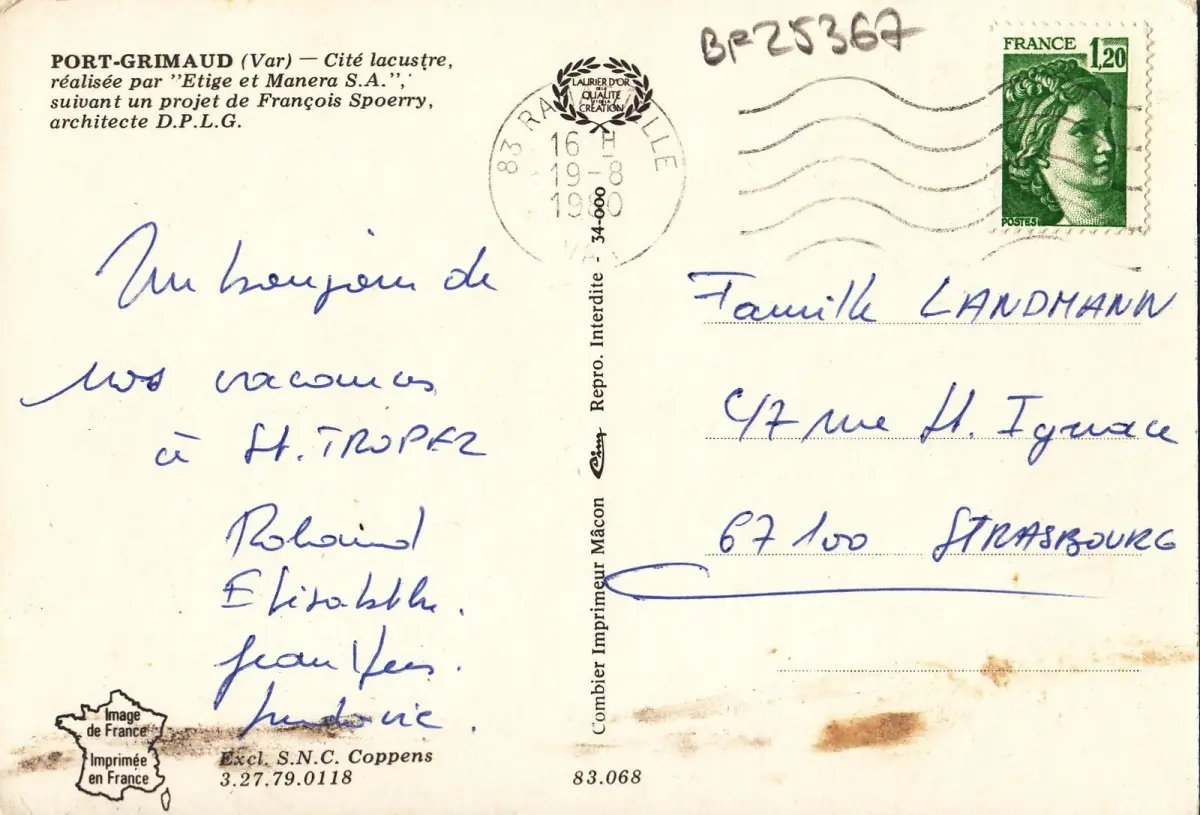 PORT-GRIMAUD (Var) — Cité lacustre,
réalisée par "Etige et Manera S.A.",
suivant un projet de François Spoerry,
architecte D.P.L.G.
BF25367
FRANCE 1,20
POSTES
LAURIER D'OR
DE LA
QUALITÉ
ET DE LA
CRÉATION
83 RA LLE
16 H
19-8
1980
VAR
Un bonjour de
nos vacances
à St. TROPEZ
Roland
Elisabeth.
Jean Yves.
Ludovic.
Famille LANDMANN
47 rue St. Ignace
67100 STRASBOURG
Combier Imprimeur Mâcon Cim Repro. Interdite - 34-000
Image
de France
Imprimée
en France
Excl. S.N.C. Coppens
3.27.79.0118
83.068